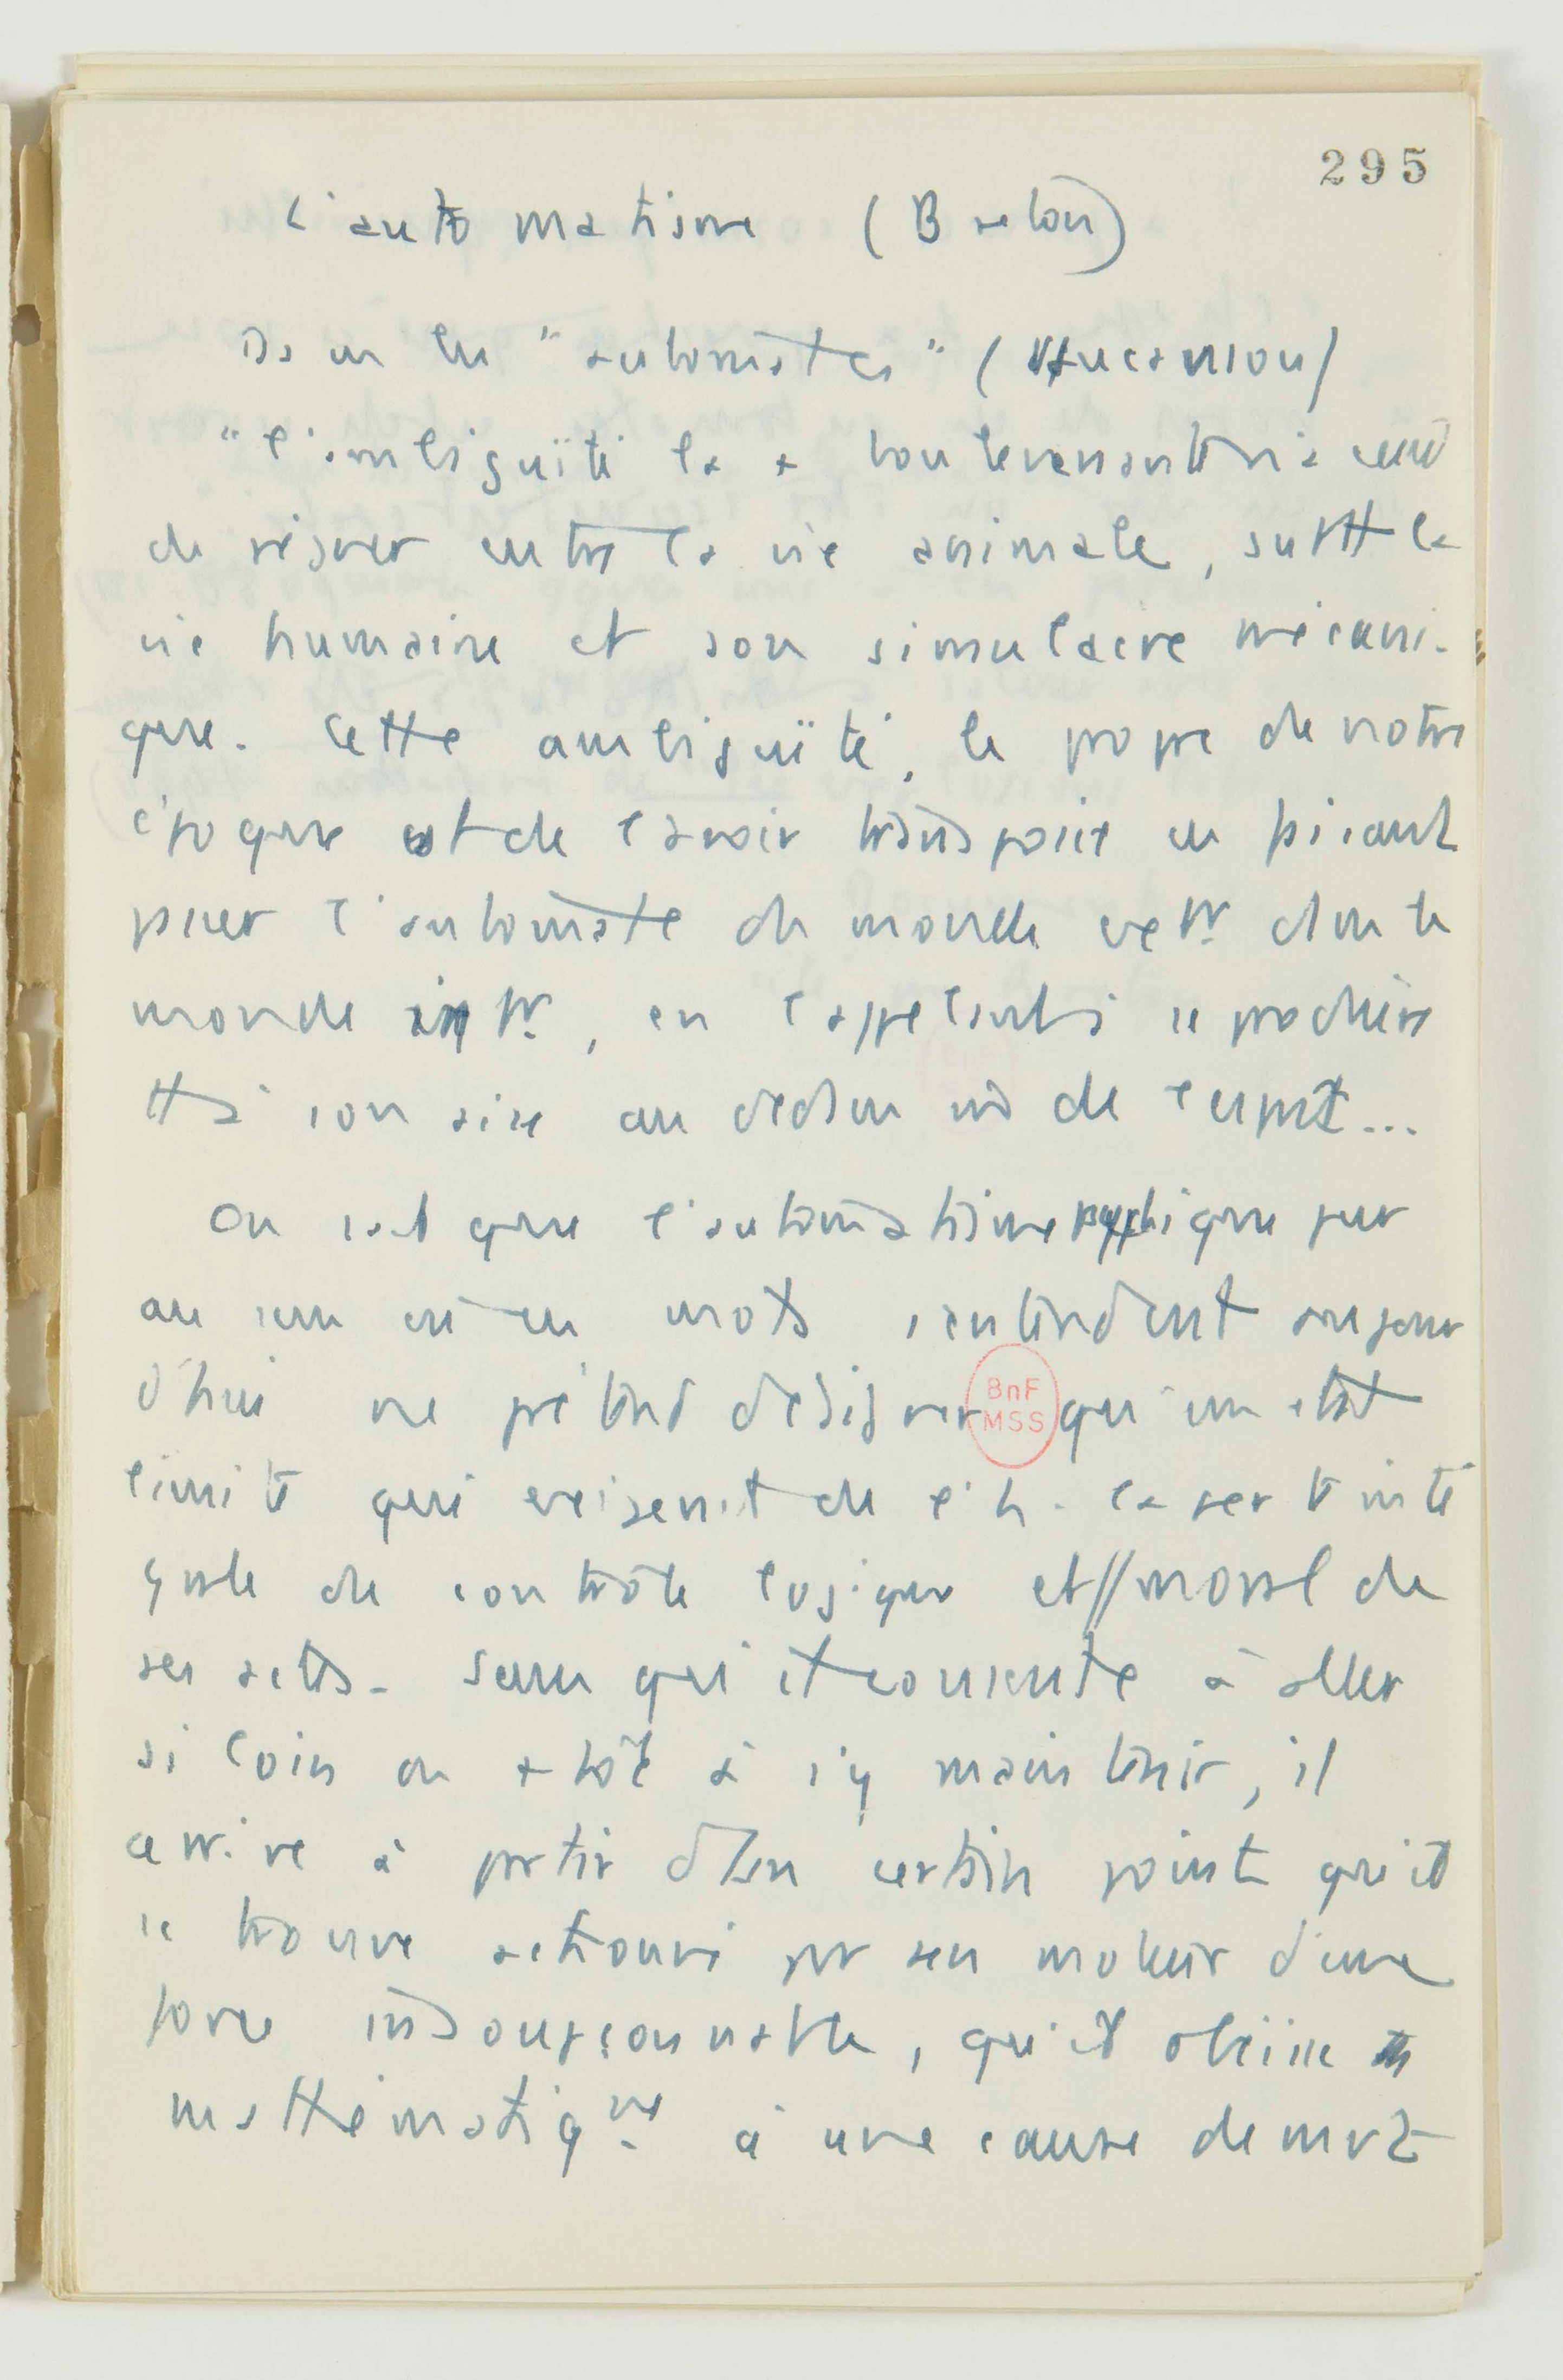 295
L'automatisme (Breton)
Ds un les "automates" (Vaucanson)
"l'ambiguïté la + bouleversante n'a cessé
de régner entre la vie animale, surtt la
vie humaine et son simulacre mécani-
que. Cette ambiguïté, le propre de notre
époque est de l'avoir transposée en faisant
passer l'automate du monde extr. dans le
monde intr., en l'appelant à se produire
tt à son aise au dedans mê de l'esprit...
On sait que l'automatisme psychique pur
au sens où ces mots s'entendent aujour
d'hui ne prétend désigner qu'un état
limite qui exigerait de l'h. la perte inté
grale de contrôle logique et // moral de
ses actes. Sans qu'il consente à aller
si loin ou + tôt à s'y maintenir, il
arrive à partir d'un certain point qu'il
se trouve par un moteur d'une
force insoupçonnable, qu'il obéisse
mathématiqnt à une cause de mvt
BnF
MSS